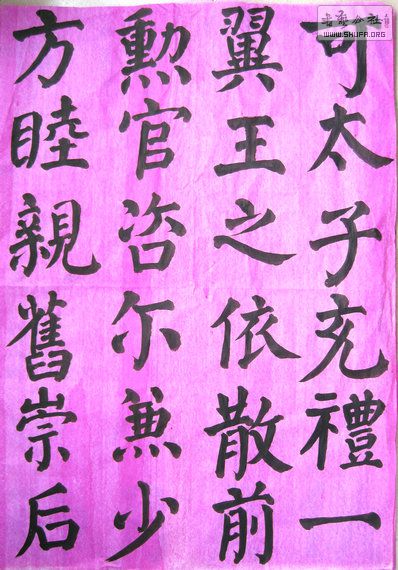 可太子充禮一
翼王之依散前
勲官咨尔兼少
方睦親舊崇后
www.SHUFA.ORG